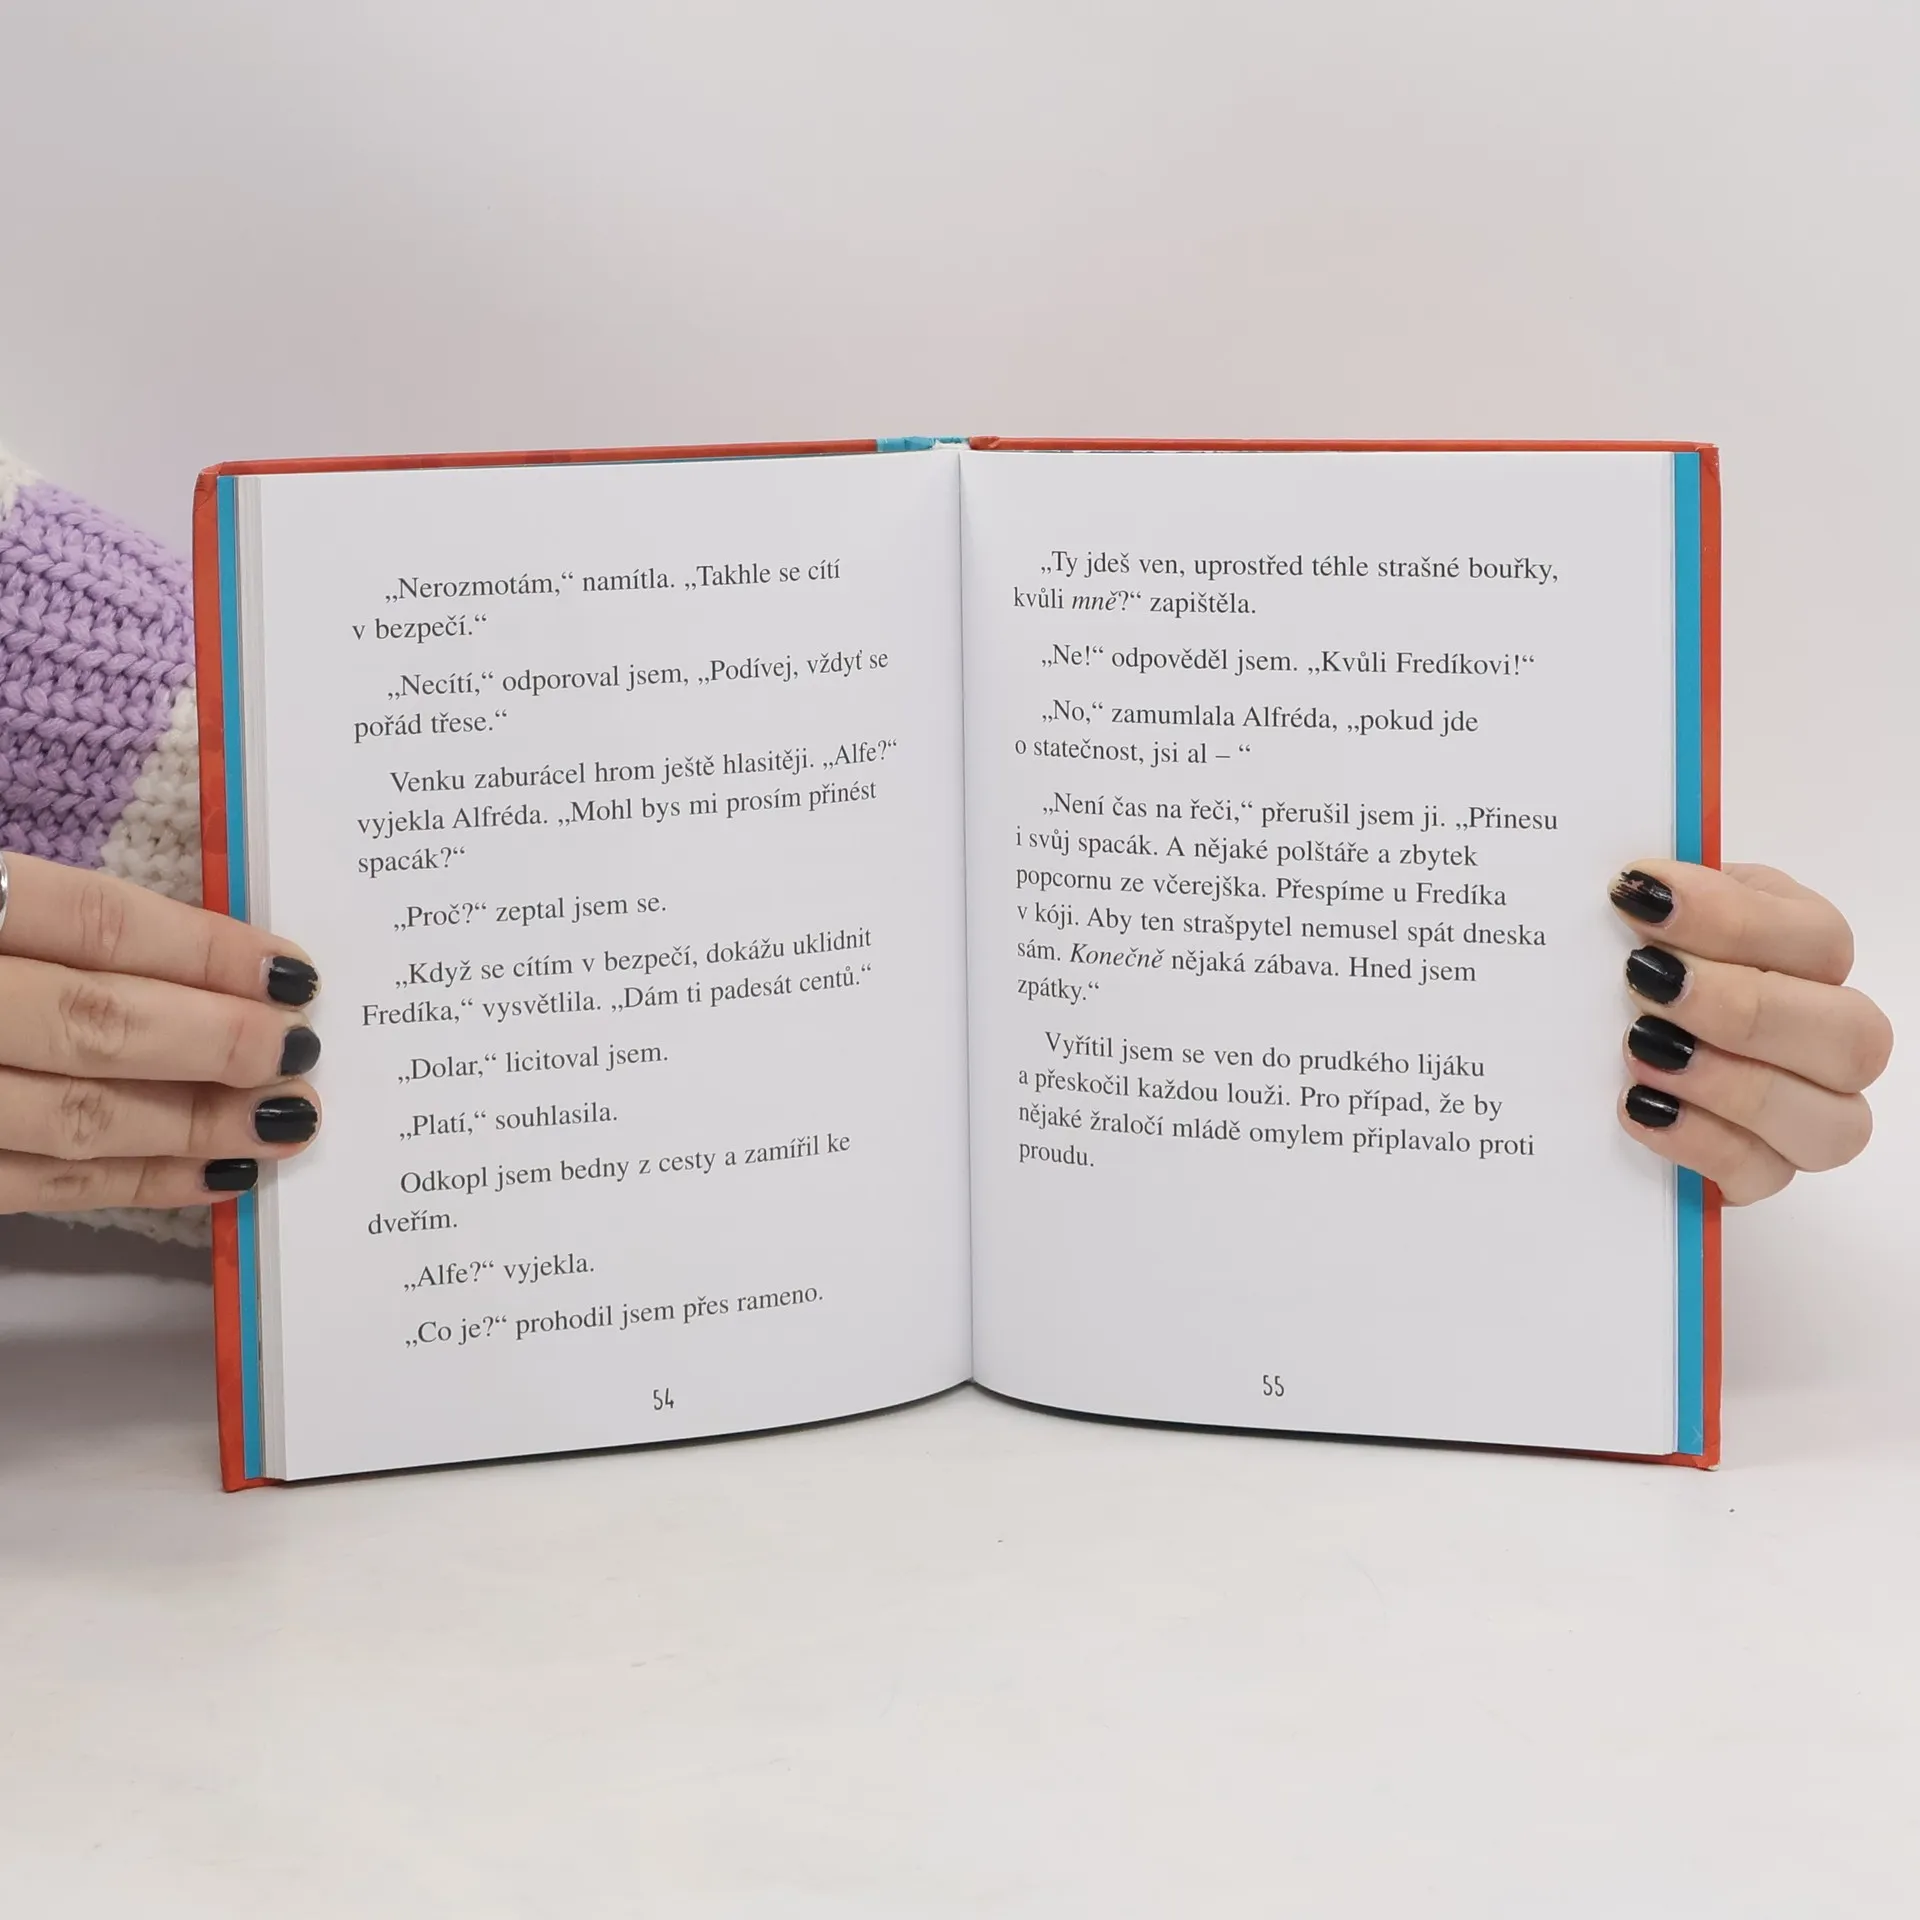 „Nerozmotám,“ namítla. „Takhle se cítí
v bezpečí.“
„Necítí,“ odporoval jsem, „Podívej, vždyť se
pořád třese.“
Venku zaburácel hrom ještě hlasitěji. „Alfe?“
vyjekla Alfréda. „Mohl bys mi prosím přinést
spacák?“
„Proč?“ zeptal jsem se.
„Když se cítím v bezpečí, dokážu uklidnit
Fredíka,“ vysvětlila. „Dám ti padesát centů.“
„Dolar,“ licitoval jsem.
„Platí,“ souhlasila.
Odkopl jsem bedny z cesty a zamířil ke
dveřím.
„Alfe?“ vyjekla.
„Co je?“ prohodil jsem přes rameno.
54
„Ty jdeš ven, uprostřed téhle strašné bouřky,
kvůli mně?“ zapištěla.
„Ne!“ odpověděl jsem. „Kvůli Fredíkovi!“
„No,“ zamumlala Alfréda, „pokud jde
o statečnost, jsi al – “
„Není čas na řeči,“ přerušil jsem ji. „Přinesu
i svůj spacák. A nějaké polštáře a zbytek
popcornu ze včerejška. Přespíme u Fredíka
v kóji. Aby ten strašpytel nemusel spát dneska
sám. Konečně nějaká zábava. Hned jsem
zpátky.“
Vyřítil jsem se ven do prudkého lijáku
a přeskočil každou louži. Pro případ, že by
nějaké žraločí mládě omylem připlavalo proti
proudu.
55